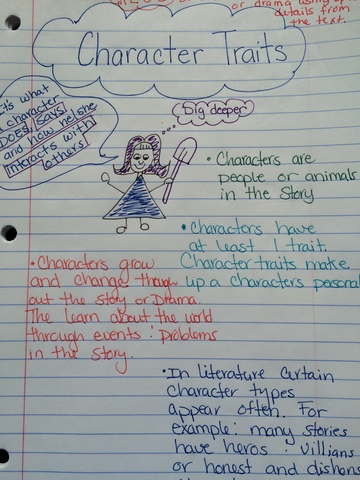 or drama using
details from
the text.
Character Traits
is what
character
DOES, says,
and how he/she
interacts with
others
Dig deeper
• Characters are
people or animals
in the story
• Characters have
at least 1 trait.
Character traits make
up a characters personal
• Characters grow
and change though
out the story or Drama.
The learn about the world
through events : problems
in the story.
• In literature certain
character types
appear often. For
example: many stories
have heros : villians
or honest and dishons